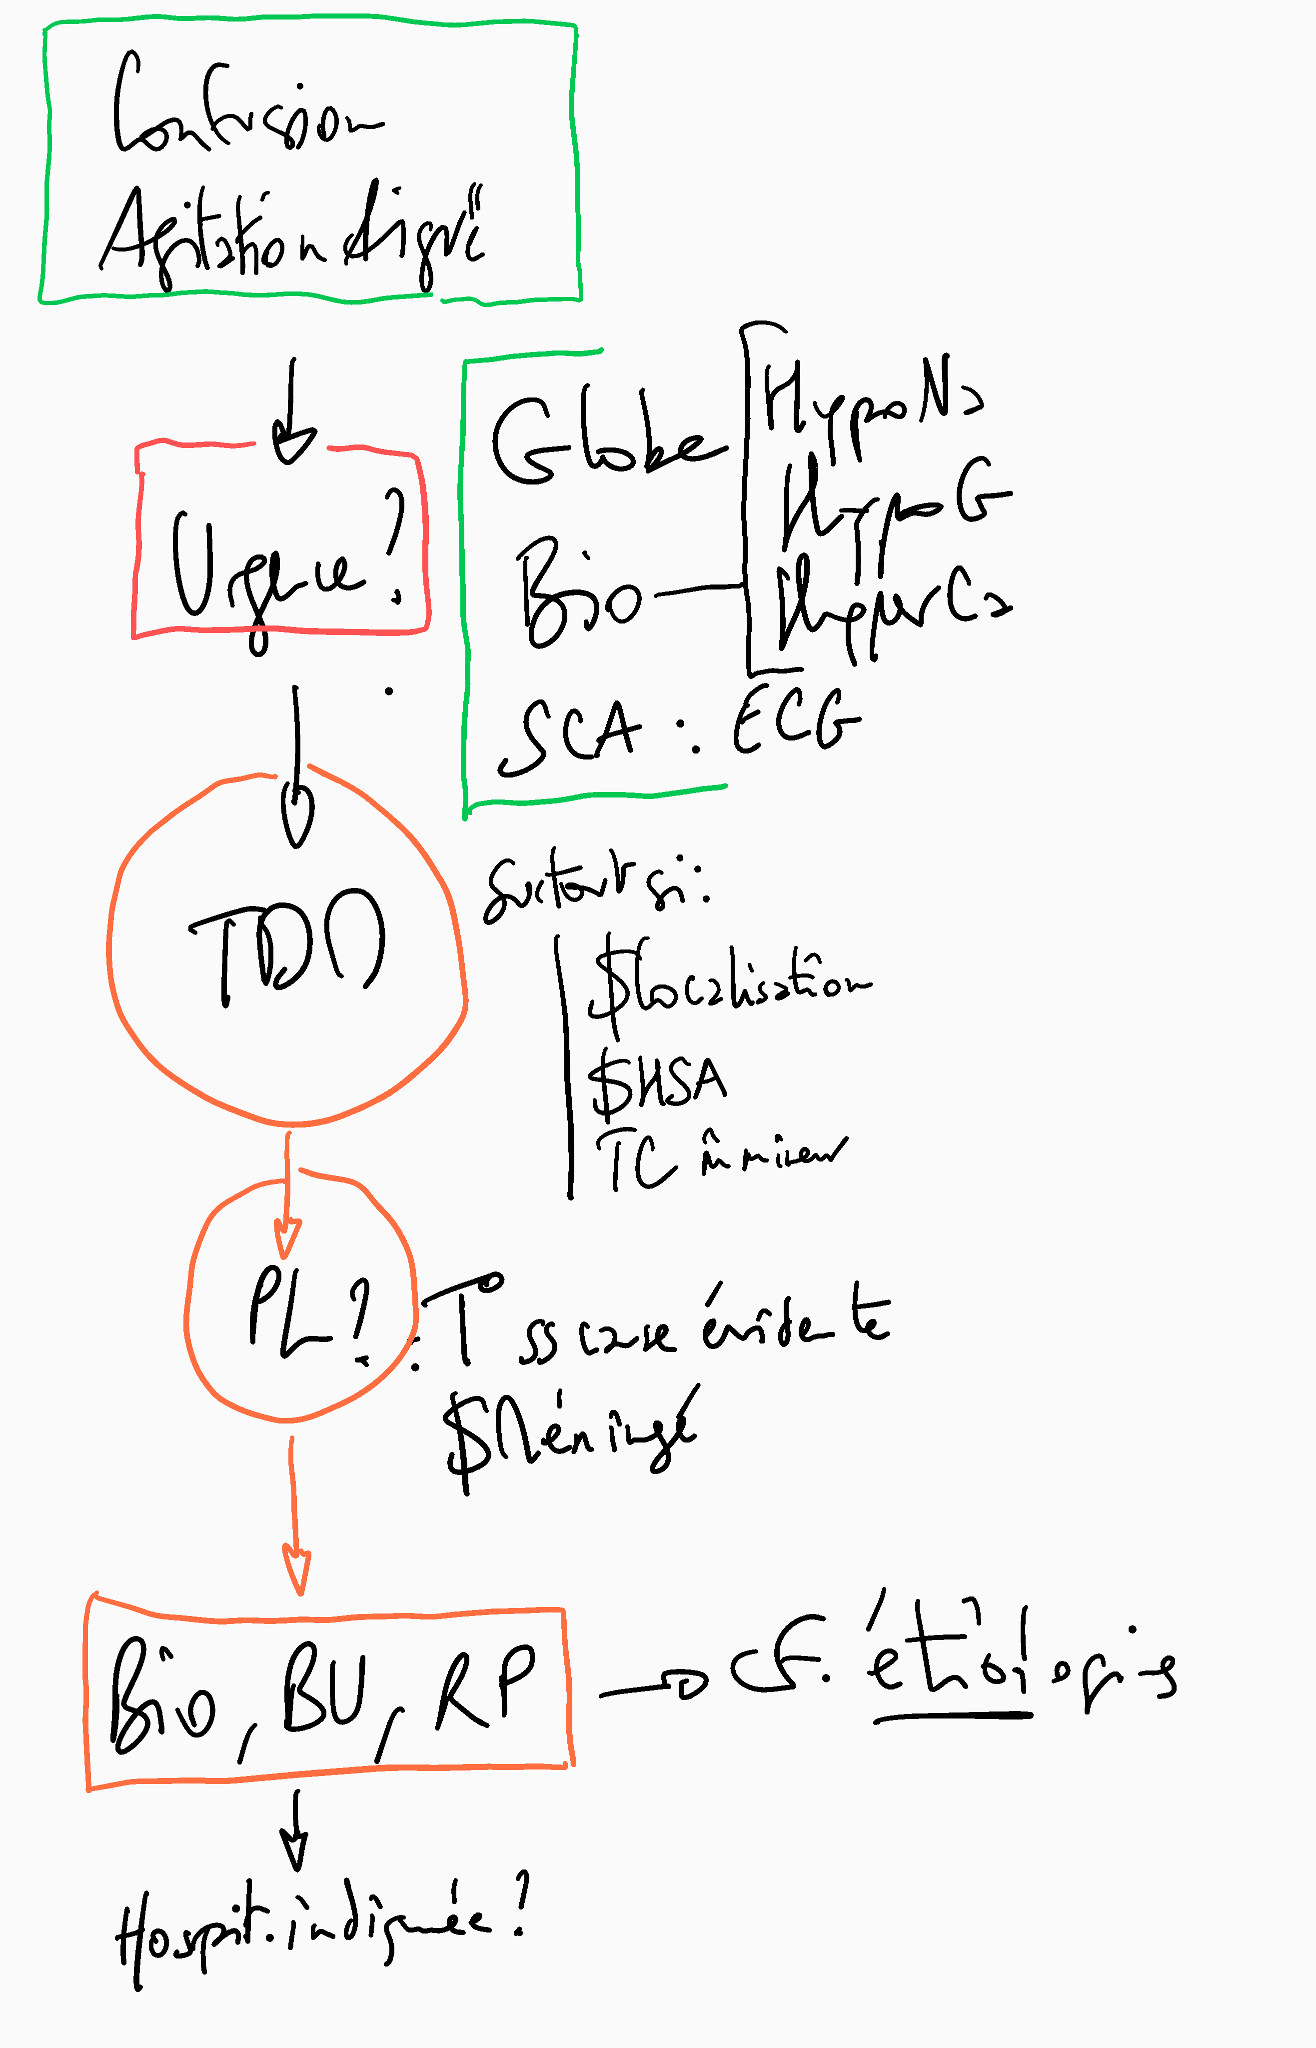 Confusion
Agitation aiguë
Urgence ?
Globe
Bio
HypoNa
HypoG
HyperCa
SCA : ECG
TDM
Surtout si :
$ localisation
$ HSA
TC m̂ mineur
PL ? : T° ss cause évidente
$ Méningé
Bio, BU, RP → cf. étiologies
Hospit. indiquée ?